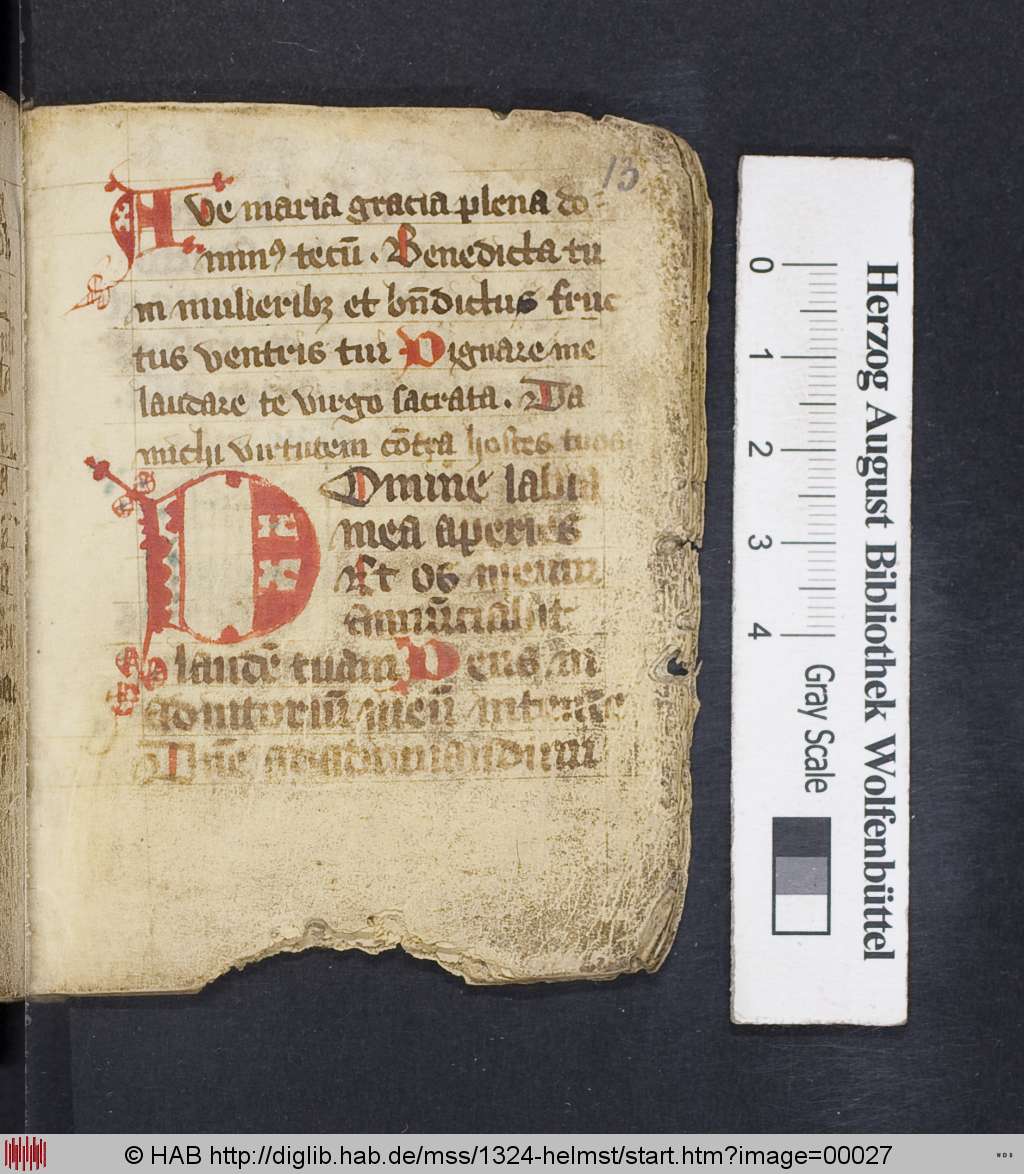 13
Ave maria gracia plena do-
minꝰ tecū. Benedicta tu
in mulieribꝫ et bn̄dictus fruc
tus ventris tui Dignare me
laudare te virgo sacrata. Da
michi virtutem cōtra hostes tuos
Domine labia
mea aperies
Et os meum
annūciabit
laudē tuam Deus in
adiutoriū meū intende
Dn̄e ad adiuuandum
0 1 2 3 4
Gray Scale
Herzog August Bibliothek Wolfenbüttel
© HAB http://diglib.hab.de/mss/1324-helmst/start.htm?image=00027